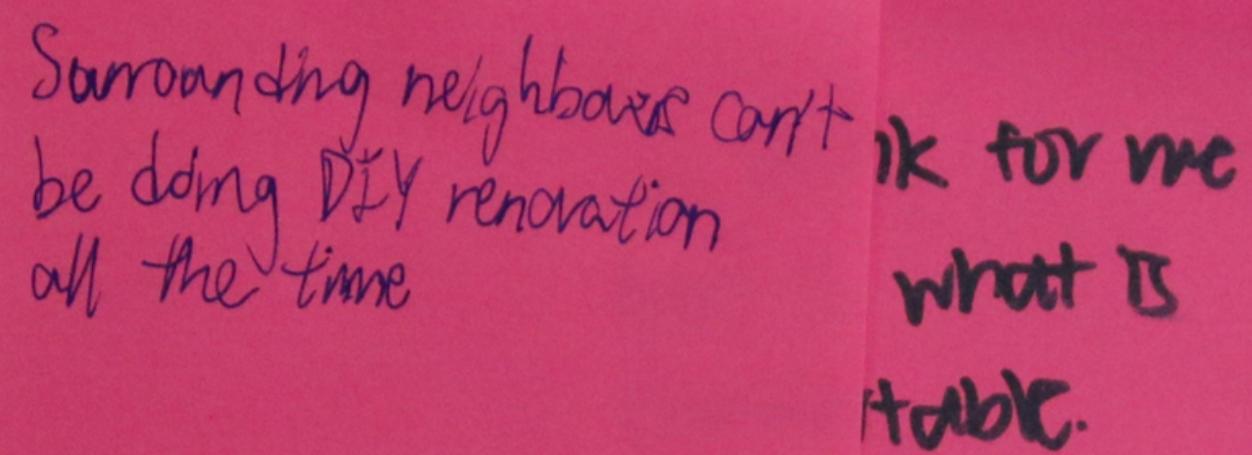 Surrounding neighbours can't
be doing DIY renovation
all the time
for me
what is